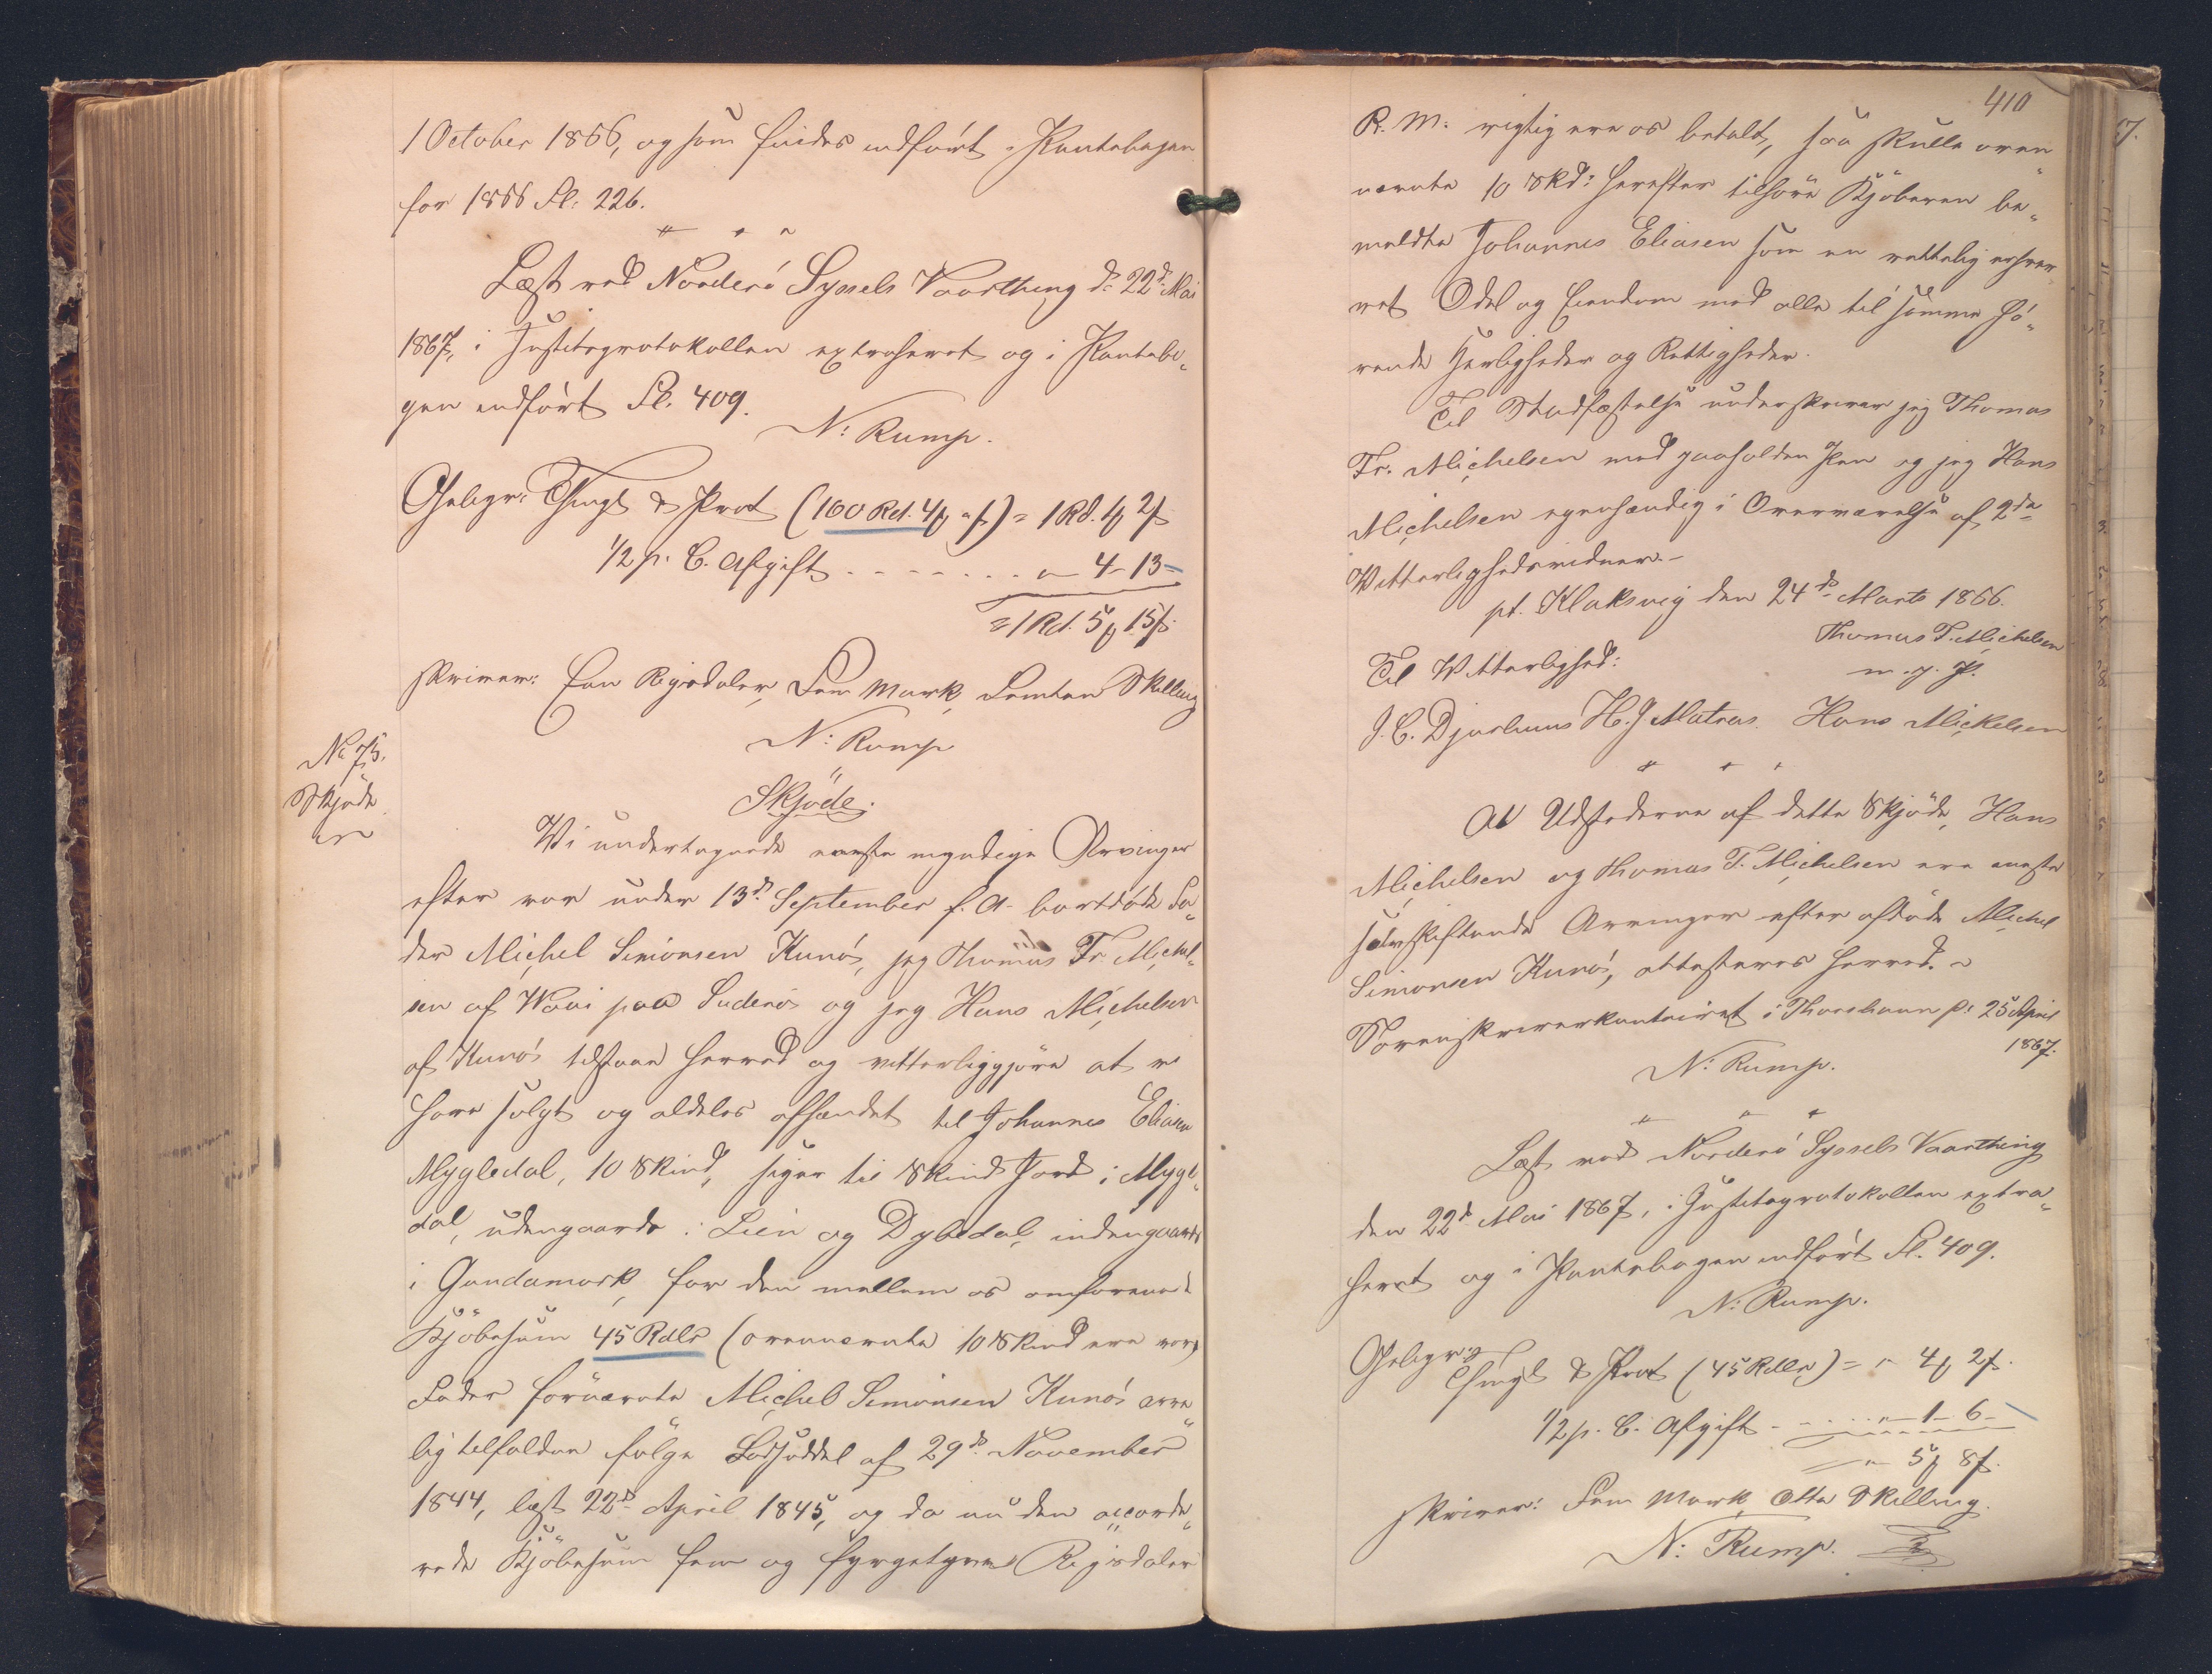 1 October 1866, og som findes indført i Pantebogen
for 1866 Fl. 226.
Læst ved Norderö Syssels Vaarthing d. 22d Mai
1867, i Justitsprotokollen extraheret og i Pantebo„
gen indført Fl. 409.
N: Rump.
Gebyr: Thingl & Prot (160 Rd. 4 # " ß) = 1 Rd. 1 # 2 ß
1/2 p. C. Afgift - - - - - - - " - 4 - 13 -
= 1 Rd. 5 # 15 ß
skriver: Een Rigsdaler, Fem Mark, Femten Skilling
N: Rump
No 75.
Skjøde
Skjöde.
Vi undertegnede eneste myndige Arvinger
efter vor under 13d September f. A. bortdøde Fa„
der Michel Simonsen Kunö, jeg Thomas Fr. Michel„
sen af Waai paa Suderö og jeg Hans Michelsen
af Kunö tilstaae herved og vitterliggjöre at vi
have solgt og aldeles afhændet til Johannes Eliasen
Mygledal, 10 Skind, siger tie Skind Jord i Mygle„
dal, udengaards i Lien og Dybedal, indengaards
i Gundamork, for den mellem os omforenede
Kjöbesum 45 Rdlr (ovennævnte 10 Skind ere vor
Fader fornævnte Michel Simonsen Kunö arve„
lig tilfalden fölge Lodseddel af 29d November
1844, læst 22d April 1845, og da nu den accorde„
rede Kjöbesum fem og fyrgetyve Rigsdaler
410
R. M. rigtig ere os betalt, saa skulle oven„
nævnte 10 Skd: herefter tilhöre Kjöberen be„
meldte Johannes Eliasen som en rettelig erhver„
vet Odel og Eiendom med alle til samme hö„
rende Herligheder og Rettigheder.
Til Stadfæstelse underskriver jeg Thomas
Fr. Michelsen med paaholden Pen og jeg Hans
Michelsen egenhændig i Overværelse af 2de
Vitterlighedsvidner. -
pt. Klaksvig den 24d Marts 1866.
Thomas F. Michelsen
m. p. P.
Til Vitterlighed:
J. C. Djurhuus H. J Matras. Hans Mickelsen
At Udstederne af dette Skjöde, Hans
Michelsen og Thomas F. Michelsen ere eneste
selvskiftende Arvinger efter afdöde Michel
Simonsen Kunö, attesteres herved. -
Sorenskriverkontoiret i Thorshavn d: 25 April
1867.
N: Rump.
Læst ved Norderö Syssels Vaarthing
den 22d Mai 1867, i Justitsprotokollen extra„
heret og i Pantebogen indført Fl. 409.
N: Rump.
Gebyr:
Thingl & Prot (45 Rdlr) = " 4 # 2 ß.
1/2 p. C. Afgift - - - - " - 1 - 6 -
" 5 # 8 ß.
skriver: Fem Mark, Otte Skilling.
N: Rump.